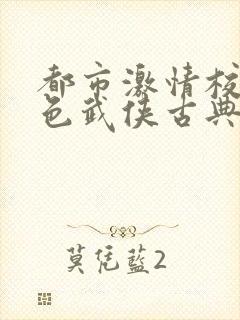 都市激情校
色武侠古典
莫凭蓝2